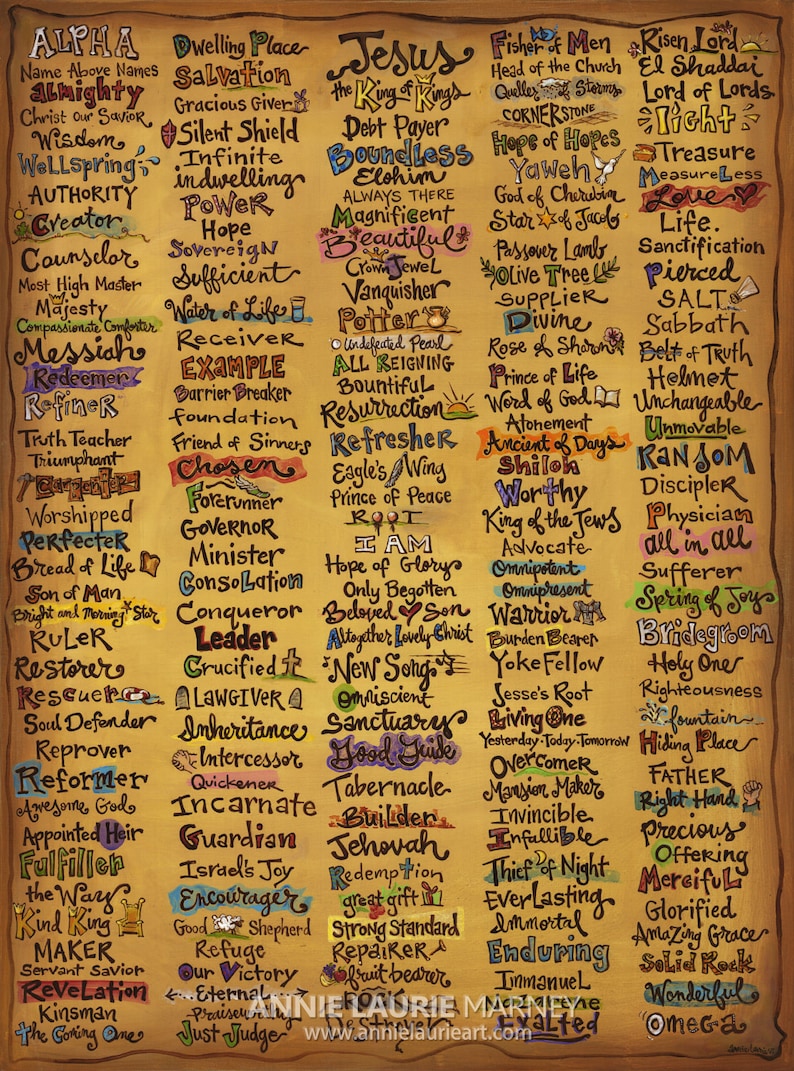 ALPHA
Name Above Names
ALMIGHTY
Christ Our Savior
Wisdom
Wellspring
AUTHORITY
Creator
Counselor
Most High Master
Majesty
Compassionate Comforter
Messiah
Redeemer
Refiner
Truth Teacher
Triumphant
Carpenter
Worshipped
Perfecter
Bread of Life
Son of Man
Bright and Morning Star
Ruler
Restorer
Rescuer
Soul Defender
Reprover
Reformer
Awesome God
Appointed Heir
Fulfiller
the Way
Kind King
MAKER
Servant Savior
Revelation
Kinsman
the Coming One
Dwelling Place
Salvation
Gracious Giver
Silent Shield
Infinite
indwelling
Power
Hope
Sovereign
Sufficient
Water of Life
Receiver
EXAMPLE
Barrier Breaker
foundation
Friend of Sinners
Chosen
Forerunner
Governor
Minister
Consolation
Conqueror
Leader
Crucified
LAWGIVER
Inheritance
Intercessor
Quickener
Incarnate
Guardian
Israel's Joy
Encourager
Good Shepherd
Refuge
Our Victory
Eternal
Praiseworthy
Just Judge
Jesus
the King of Kings
Debt Payer
Boundless
Elohim
ALWAYS THERE
Magnificent
Beautiful
Crown Jewel
Vanquisher
Potter
Undefeated Pearl
ALL REIGNING
Bountiful
Resurrection
Refresher
Eagle's Wing
Prince of Peace
ROOT
I AM
Hope of Glory
Only Begotten
Beloved Son
Altogether Lovely Christ
New Song
Omniscient
Sanctuary
Good Guide
Tabernacle
Builder
Jehovah
Redemption
great gift
Strong Standard
Repairer
fruit-bearer
Fisher of Men
Head of the Church
Queller of Storms
CORNERSTONE
Hope of Hopes
Yaweh
God of Cherubim
Star of Jacob
Passover Lamb
Olive Tree
Supplier
Divine
Rose of Sharon
Prince of Life
Word of God
Atonement
Ancient of Days
Shiloh
Worthy
King of the Jews
Advocate
Omnipotent
Omnipresent
Warrior
Burden Bearer
Yoke Fellow
Jesse's Root
Living One
Yesterday·Today·Tomorrow
Overcomer
Mansion Maker
Invincible
Infallible
Thief of Night
Everlasting
Immortal
Enduring
Immanuel
Exalted
Risen Lord
El Shaddai
Lord of Lords
light
Treasure
Measureless
Love
Life.
Sanctification
Pierced
SALT
Sabbath
Belt of Truth
Helmet
Unchangeable
Unmovable
Ransom
Discipler
Physician
all in all
Sufferer
Spring of Joy
Bridegroom
Holy One
Righteousness
fountain
Hiding Place
FATHER
Right Hand
Precious
Offering
Merciful
Glorified
Amazing Grace
Solid Rock
Wonderful
Omega
ANNIE LAURIE MARNEY
www.annielaurieart.com